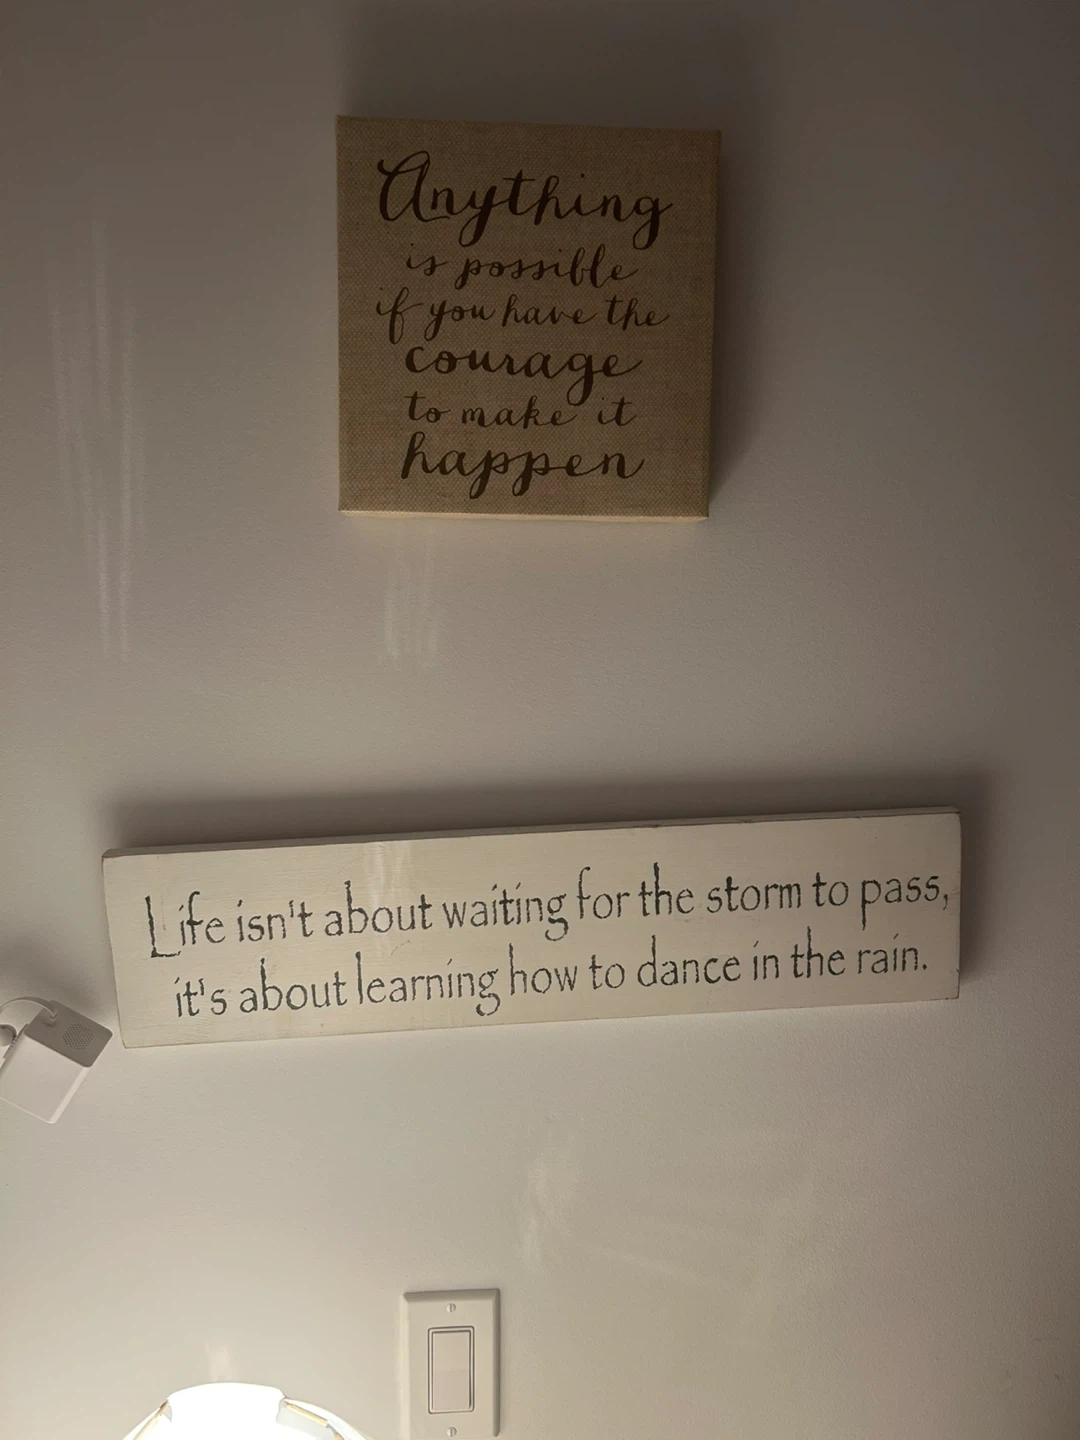 Anything
is possible
if you have the
courage
to make it
happen
Life isn't about waiting for the storm to pass,
it's about learning how to dance in the rain.